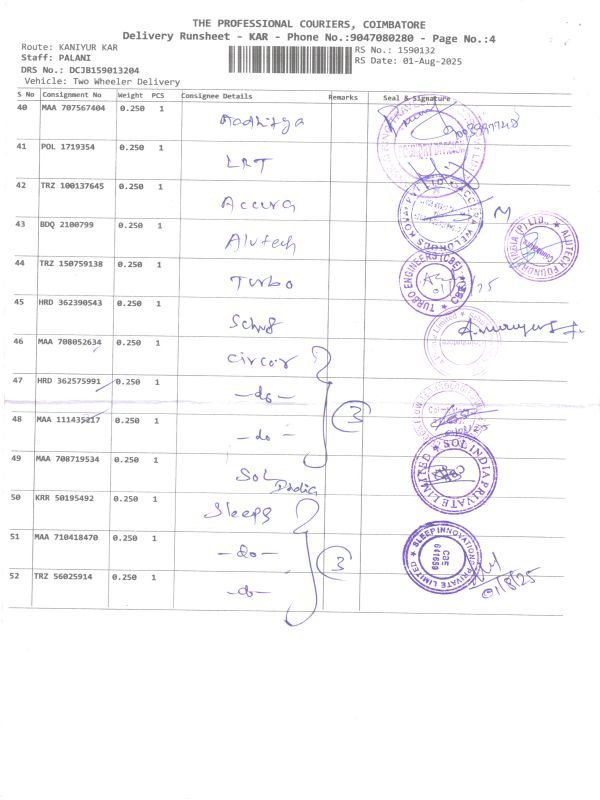 THE PROFESSIONAL COURIERS, COIMBATORE
Delivery Runsheet - KAR - Phone No.:9047080280 - Page No.:4
Route: KANIYUR KAR
RS No.: 1590132
Staff: PALANI
RS Date: 01-Aug-2025
DRS No.: DCJB159013204
Vehicle: Two Wheeler Delivery
S No Consignment No Weight PCS Consignee Details Remarks Seal & Signature
40 MAA 707567404 0.250 1 Aadhitya
41 POL 1719354 0.250 1 LRT
42 TRZ 100137645 0.250 1 Accura
43 BDQ 2100799 0.250 1 Alutech
44 TRZ 150759138 0.250 1 Turbo
45 HRD 362390543 0.250 1
46 MAA 708052634 0.250 1 Circor
47 HRD 362575991 0.250 1 -do- 3
48 MAA 111435217 0.250 1 -do-
49 MAA 708719534 0.250 1 SOL India
50 KRR 50195492 0.250 1 Sleeps
51 MAA 710418470 0.250 1 -do- 3
52 TRZ 56025914 0.250 1 -do-
ALUTECH FOUNDRY INDIA (P) LTD.
Coimbatore
TURBO ENGINEERS (CBE)
CBE
SOL INDIA PRIVATE LIMITED
SLEEP INNOVATIONS PRIVATE LIMITED
CBE
641659
01/8/25